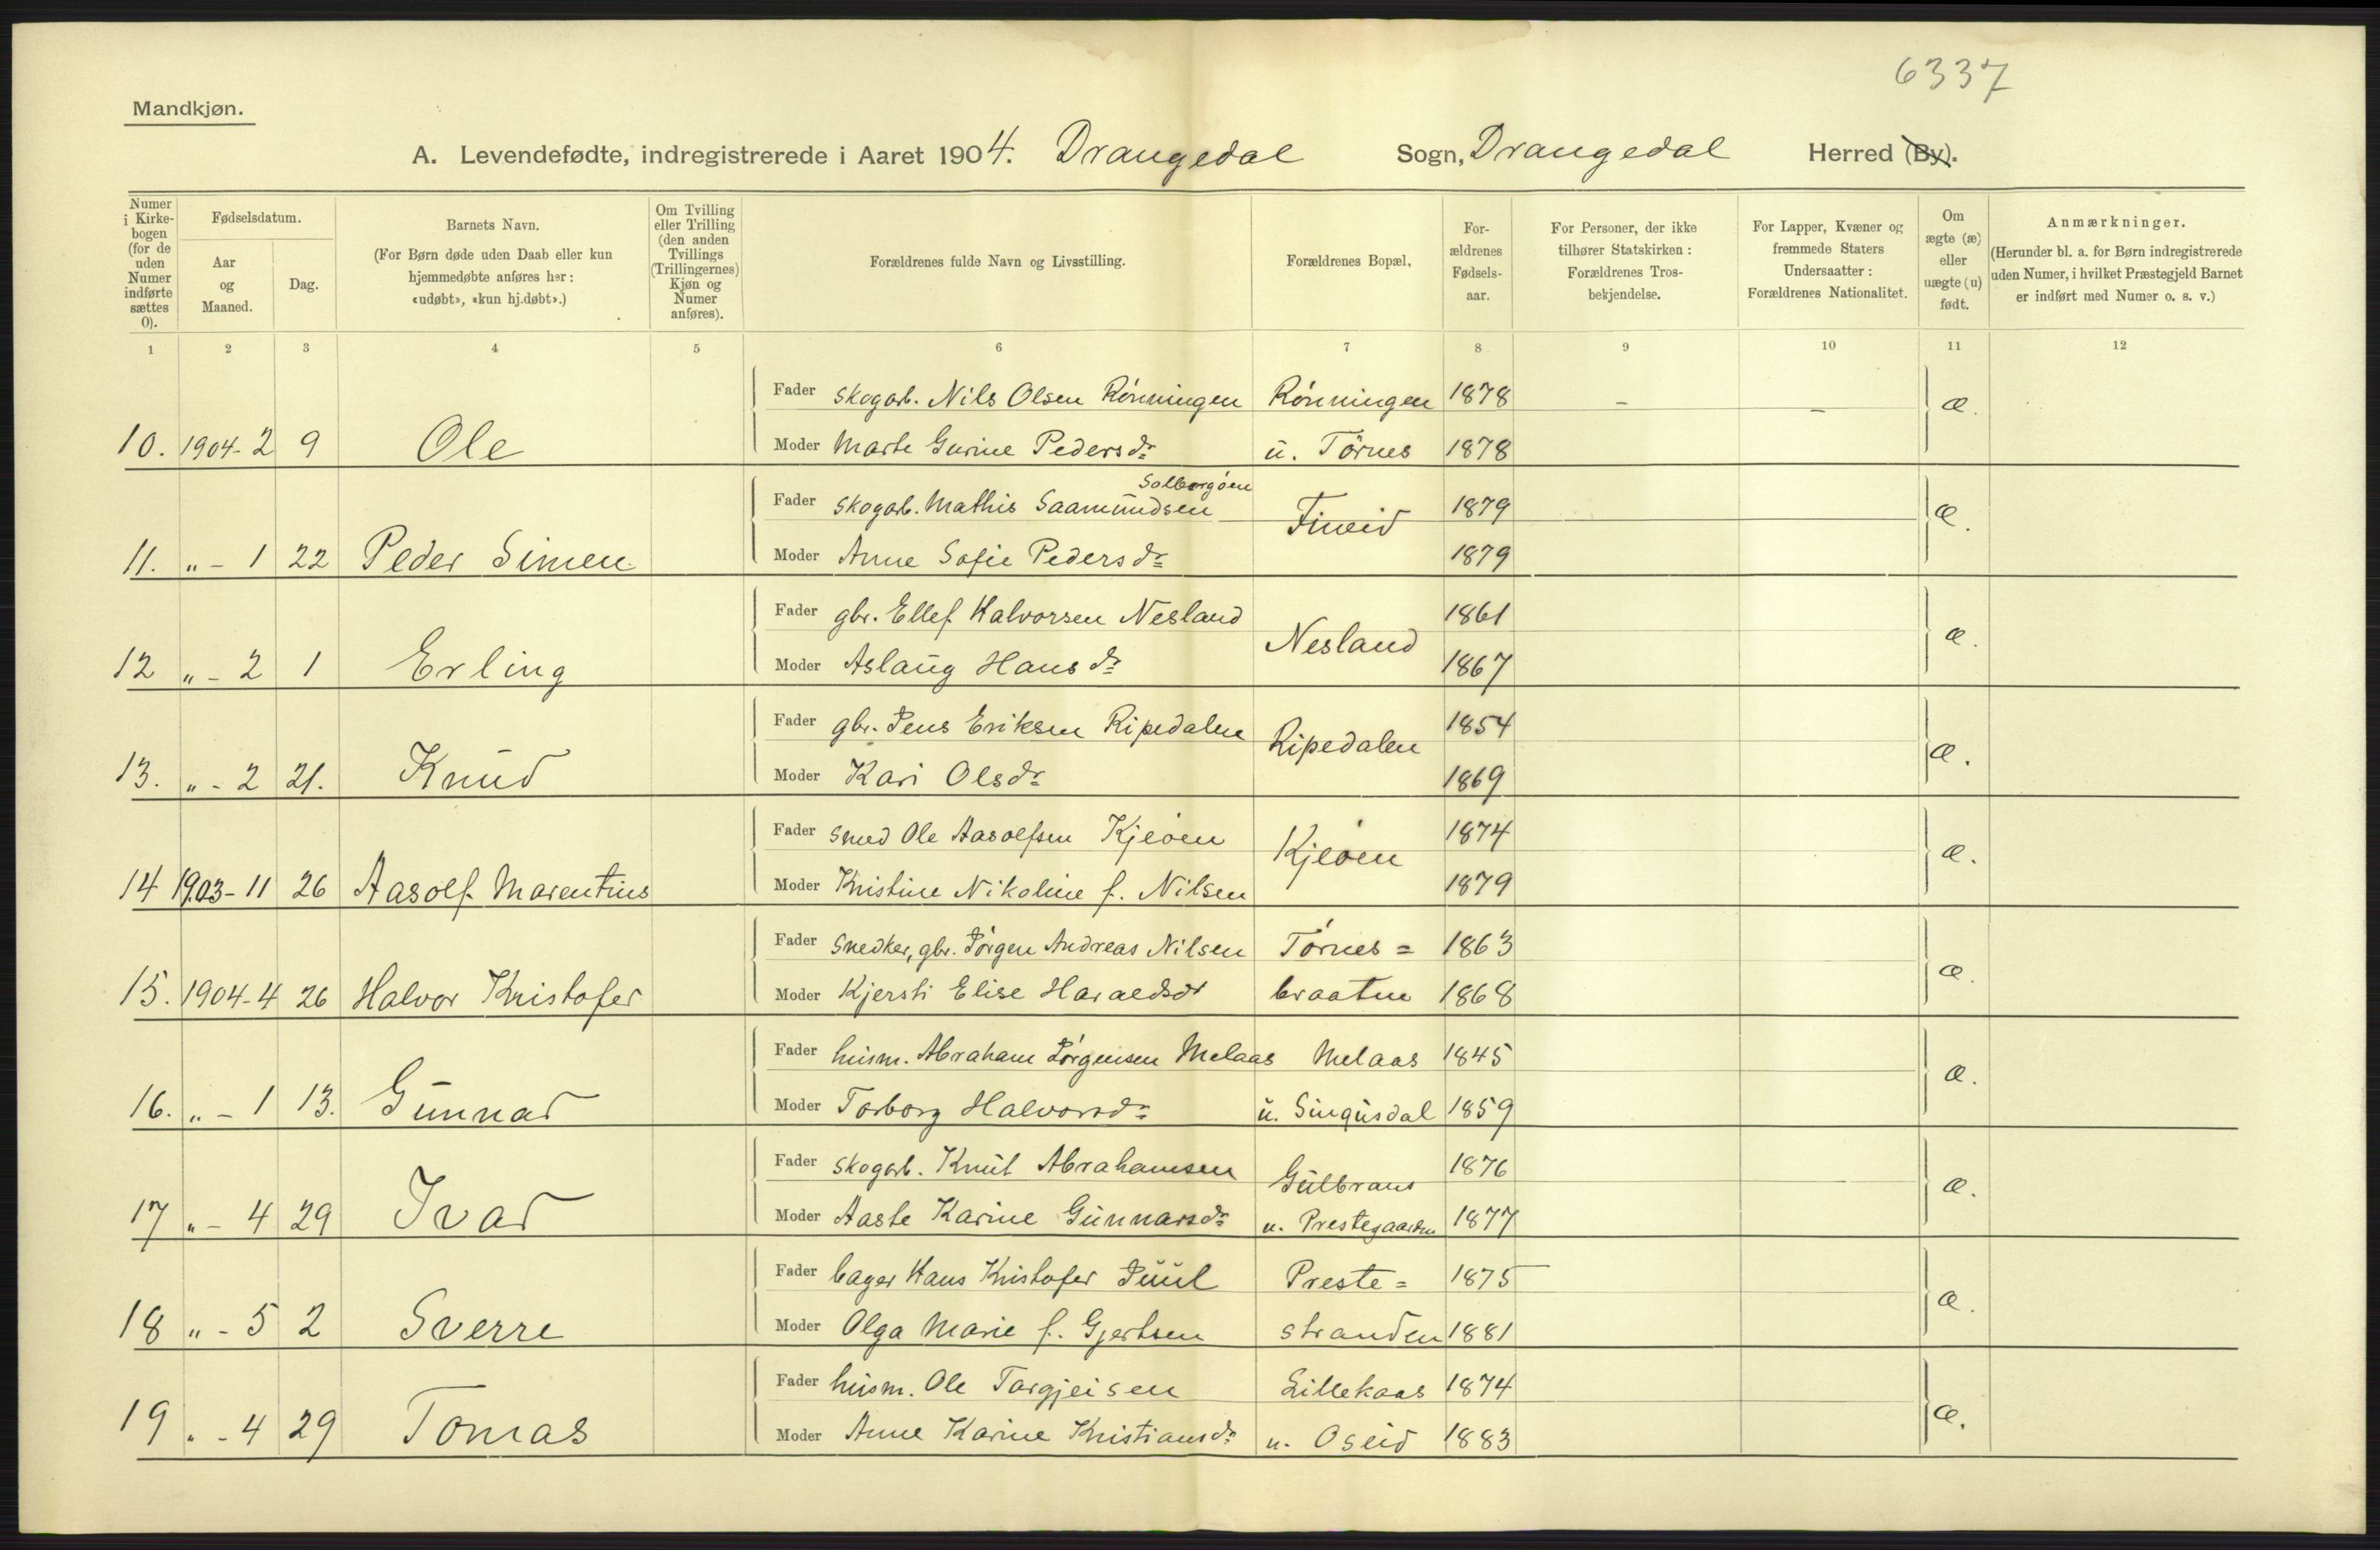 6337
Mandkjøn.
A. Levendefødte, indregistrerede i Aaret 1904. Drangedal Sogn, Drangedal Herred (By).
Numer i Kirkebogen (for de uden Numer indførte sættes 0).
Fødselsdatum.
Aar og Maaned.
Dag.
Barnets Navn.
(For Børn døde uden Daab eller kun hjemmedøbte anføres her: «udøbt», «kun hj.døbt».)
Om Tvilling eller Trilling (den anden Tvillings (Trillingernes) Kjøn og Numer anføres).
Forældrenes fulde Navn og Livsstilling.
Forældrenes Bopæl,
Forældrenes Fødselsaar.
For Personer, der ikke tilhører Statskirken: Forældrenes Trosbekjendelse.
For Lapper, Kvæner og fremmede Staters Undersaatter: Forældrenes Nationalitet.
Om ægte (æ) eller uægte (u) født.
Anmærkninger.
(Herunder bl. a. for Børn indregistrerede uden Numer, i hvilket Præstegjeld Barnet er indført med Numer o. s. v.)
1 2 3 4 5 6 7 8 9 10 11 12
Fader skogarb. Nils Olsen Rónningen Rónningen 1878 – – æ.
10. 1904-2 9 Ole Moder Marte Gurine Pedersdr u. Törnes 1878
Solbergóen
Fader skogarb. Mathis Saamundsen Fineid 1879 æ.
11. „ – 1 22 Peder Simen Moder Anne Sofie Pedersdr 1879
Fader gbr. Ellef Halvorsen Nesland Nesland 1861 æ.
12 „ – 2 1 Erling Moder Aslaug Hansdr 1867
Fader gbr. Jens Eriksen Ripedalen Ripedalen 1854 æ.
13. „ - 2 21. Knud Moder Kari Olsdr 1869
Fader smed Ole Aasolfsen Kjeóen Kjeóen 1874 æ.
14 1903-11 26 Aasolf Marentius Moder Kristine Nikoline f. Nilsen 1879
Fader snedker, gbr. Jórgen Andreas Nilsen Tórnes= 1863 æ.
15. 1904-4 26 Halvor Kristofer Moder Kjersti Elise Haraldsdr braaten 1868
Fader husm. Abraham Jórgensen Melaas Melaas 1845 æ.
16. „ – 1 13. Gunnar Moder Torborg Halvorsdr u. Singusdal 1859
Fader skogarb. Knut Abrahamsen Gulbrans 1876 æ.
17 „ – 4 29 Ivar Moder Aaste Karine Gunnarsdr u. Prestegaarden 1877
Fader bager Hans Kristofer Juul Preste= 1875 æ.
18 „ - 5 2 Sverre Moder Olga Marie f. Gjertsen stranden 1881
Fader husm. Ole Targjeisen Lillekaas 1874 æ.
19 „ - 4 29 Tomas Moder Anne Karine Kristiansdr u. Oseid 1883